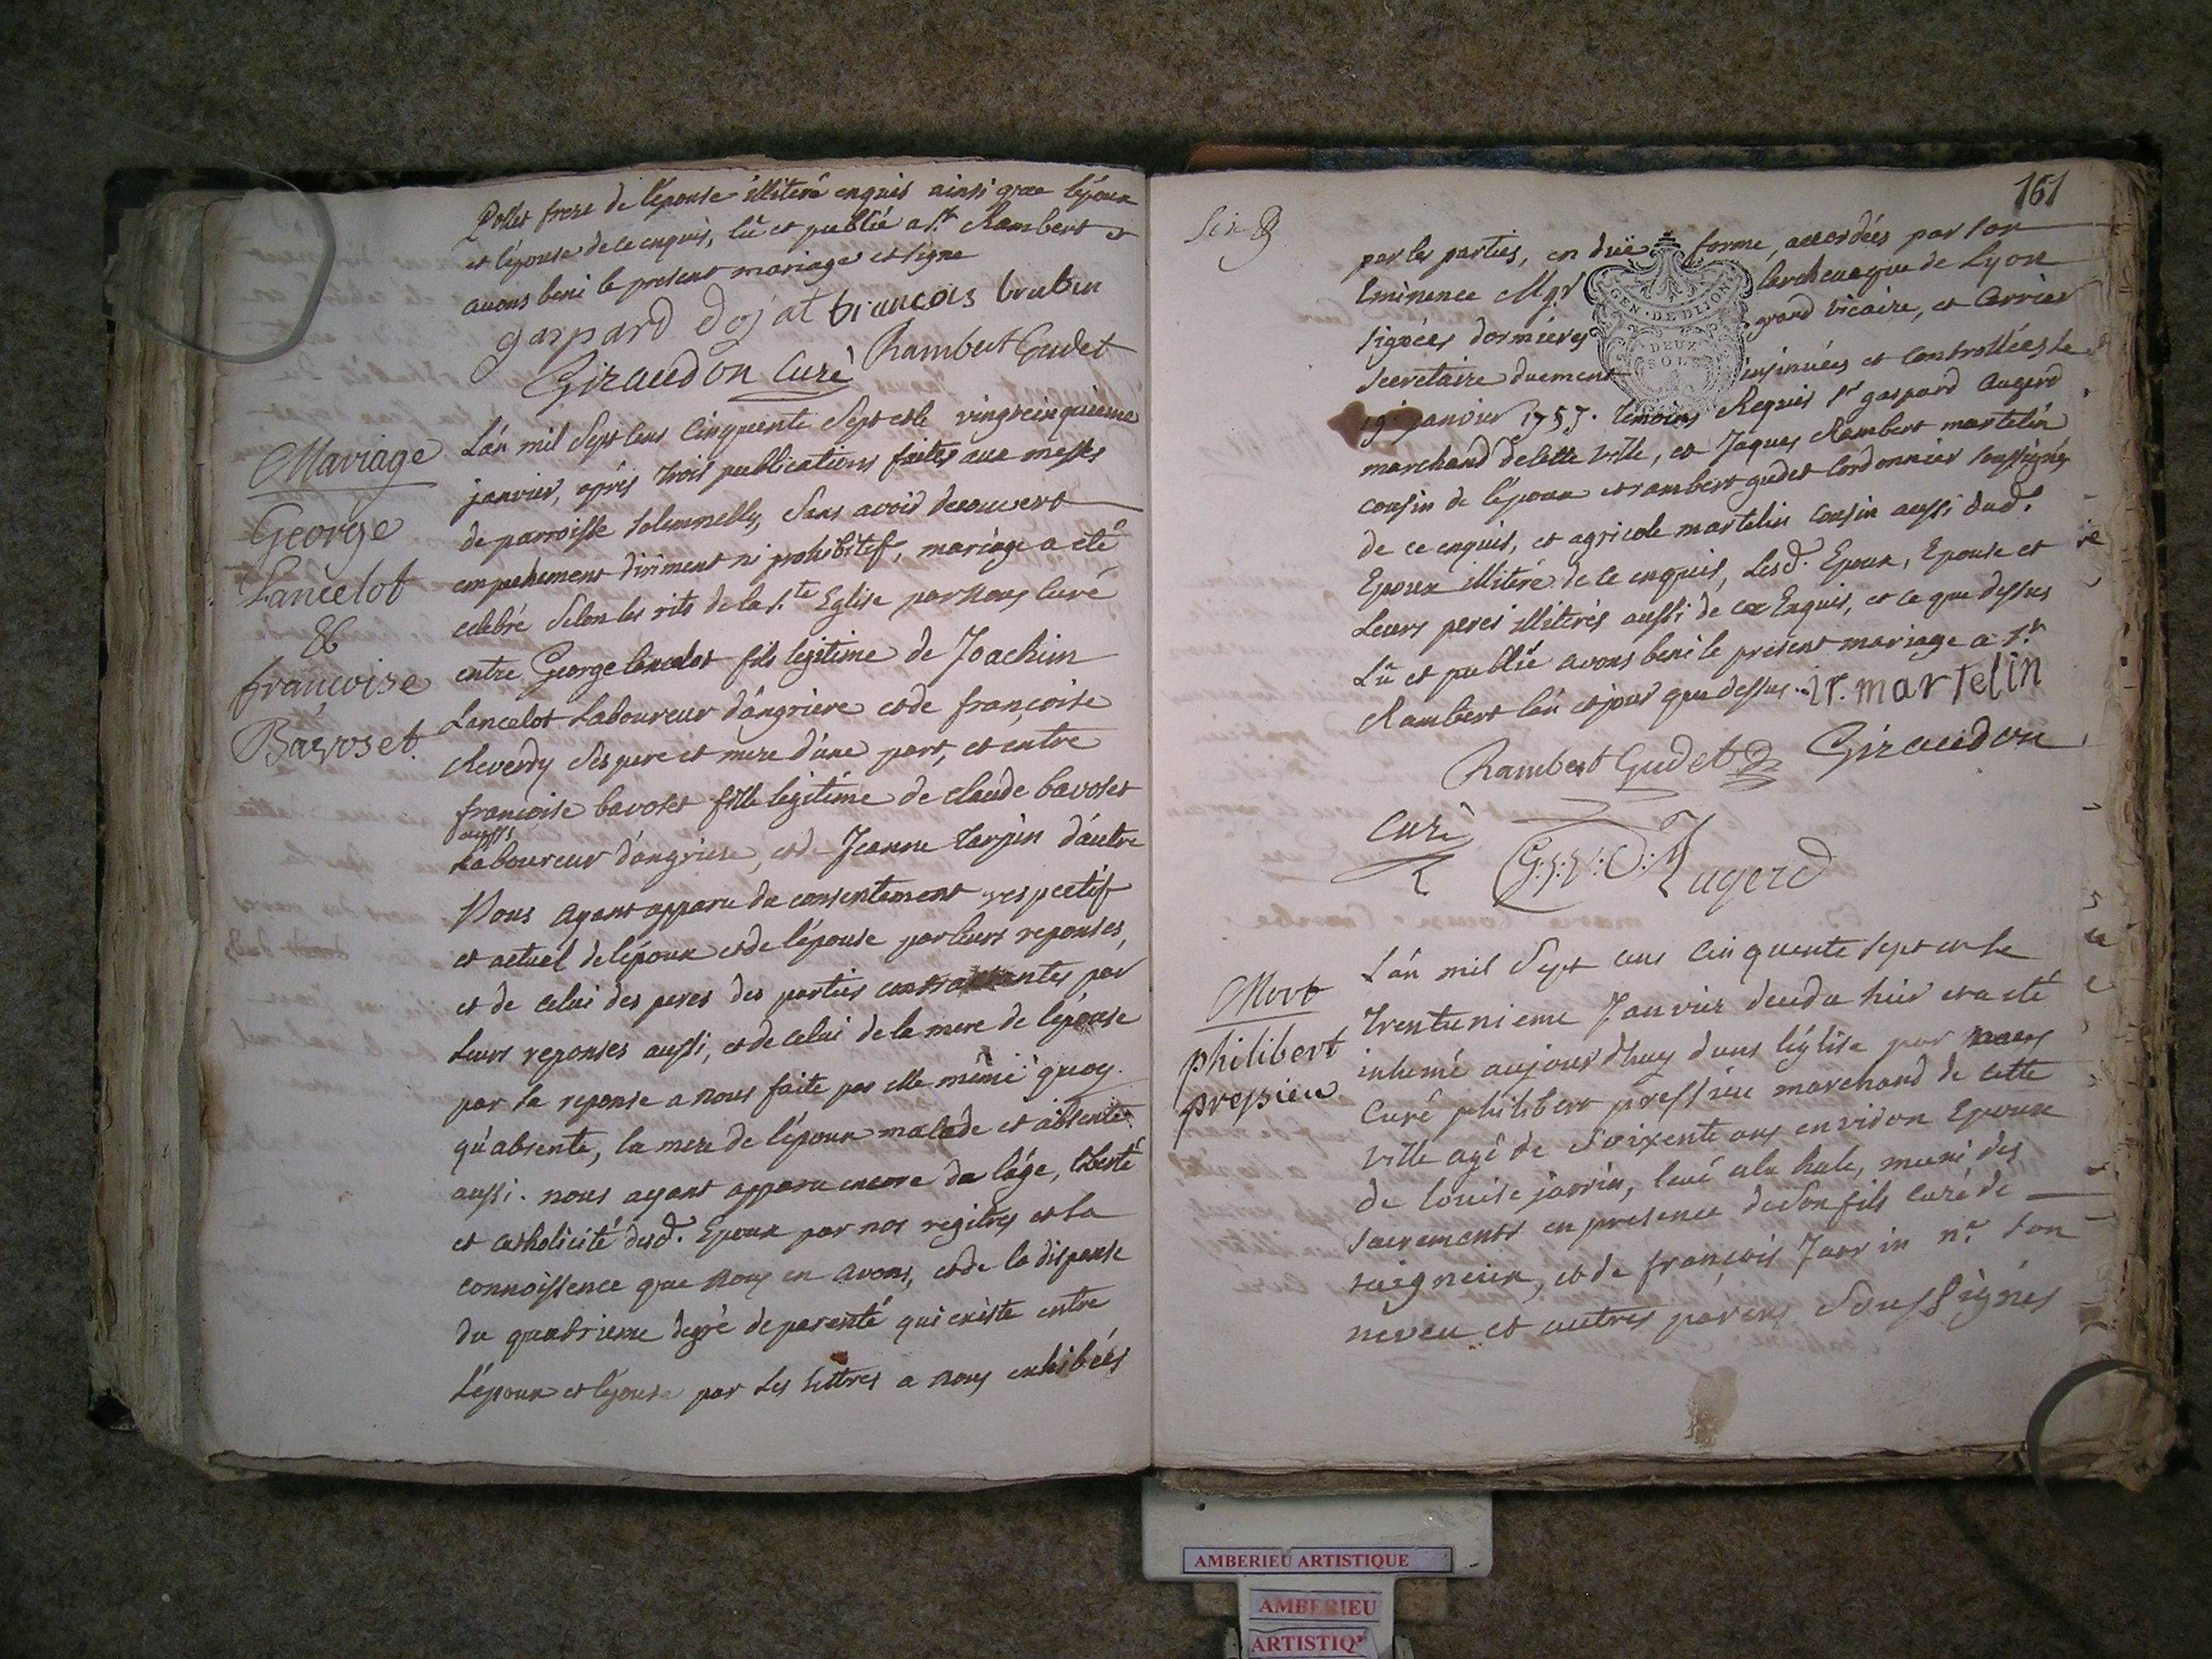 Pollet frere de l'épouse illiteré enquis ainsi que l'époux
et l'épouse de ce enquis, lû et publié a St. Rambert et
avons beni le present mariage et signe
gaspard dojat françois brubin
Giraudon Curé Rambert Gudet
Mariage
George
Lancelot
&
françoise
Bavoset.
L'an mil sept cens cinquante sept et le vingtcinquieme
janvier, aprés trois publications faites aux messes
de parroisse solemnelly, sans avoir decouvert
empechement diriment ni prohibitif, mariage a eté
celebré selon les rits de la Ste. Eglise par nous curé
entre George lancelot fils legitime de Joachim
Lancelot Laboureur d'angriere et de françoise
Reverdy ses pere et mere d'une part, et entre
françoise bavoset fille legitime de claude bavoset
aussi
Laboureur d'angriere, et de Jeanne tarpin d'autre
Nous ayant apparu du consentement respectif
et actuel de l'époux et de l'épouse par leurs reponses,
et de celui des peres des parties contractantes par
leurs reponses aussi, et de celui de la mere de l'épouse
par sa reponse a nous faite par elle même quoy
qu'absente, la mere de l'époux malade et absente
aussi. nous ayant apparu encore de l'âge, liberté
et catholicité desd. Epoux par nos registres et la
connoissence que nous en avons, et de la dispense
du quatrieme degré de parenté qui existe entre
L'époux et l'épouse par les lettres a nous exhibées
161
par les parties, en duë forme, accordées par son
Eminence Mgr l'archevaque de Lyon
signées dormieres grand vicaire, et Carrier
secretaire duement insinuées et controllées le
19 janvier 1757. temoins Requis sr gaspard Augerd
marchand de cette ville, et Jaques Rambert martelin
cousin de l'époux et rambert gudet cordonnier soussignés
de ce enquis, et agricole martelin cousin aussi dud.
Epoux illiteré de ce enquis, Lesd. Epoux, Epouse et
Leurs peres illiterés aussi de ce Enquis, et ce que dessus
Lû et publié avons beni le present mariage a St.
Rambert l'an et jour que dessus. J.r. martelin
Rambert Gudet Giraudon
curé
Augerd
GEN. DE DIJON
DEUX
SOLS
Mort
philibert
pressieu
L'an mil sept cens cinquante sept et le
trentunieme Janvier decedu hier et a eté
inhumé aujourd'huy dans l'église par nous
curé philibert pressieu marchand de cette
ville agé de soixente ans environ Epoux
de louise jarrin, levé a la hale, muni des
sacrements en presence de son fils curé de
seigneux, et de françois Jarrin nre. son
neveu et autres parens soussignés
AMBERIEU ARTISTIQUE
AMBERIEU
ARTISTIQ